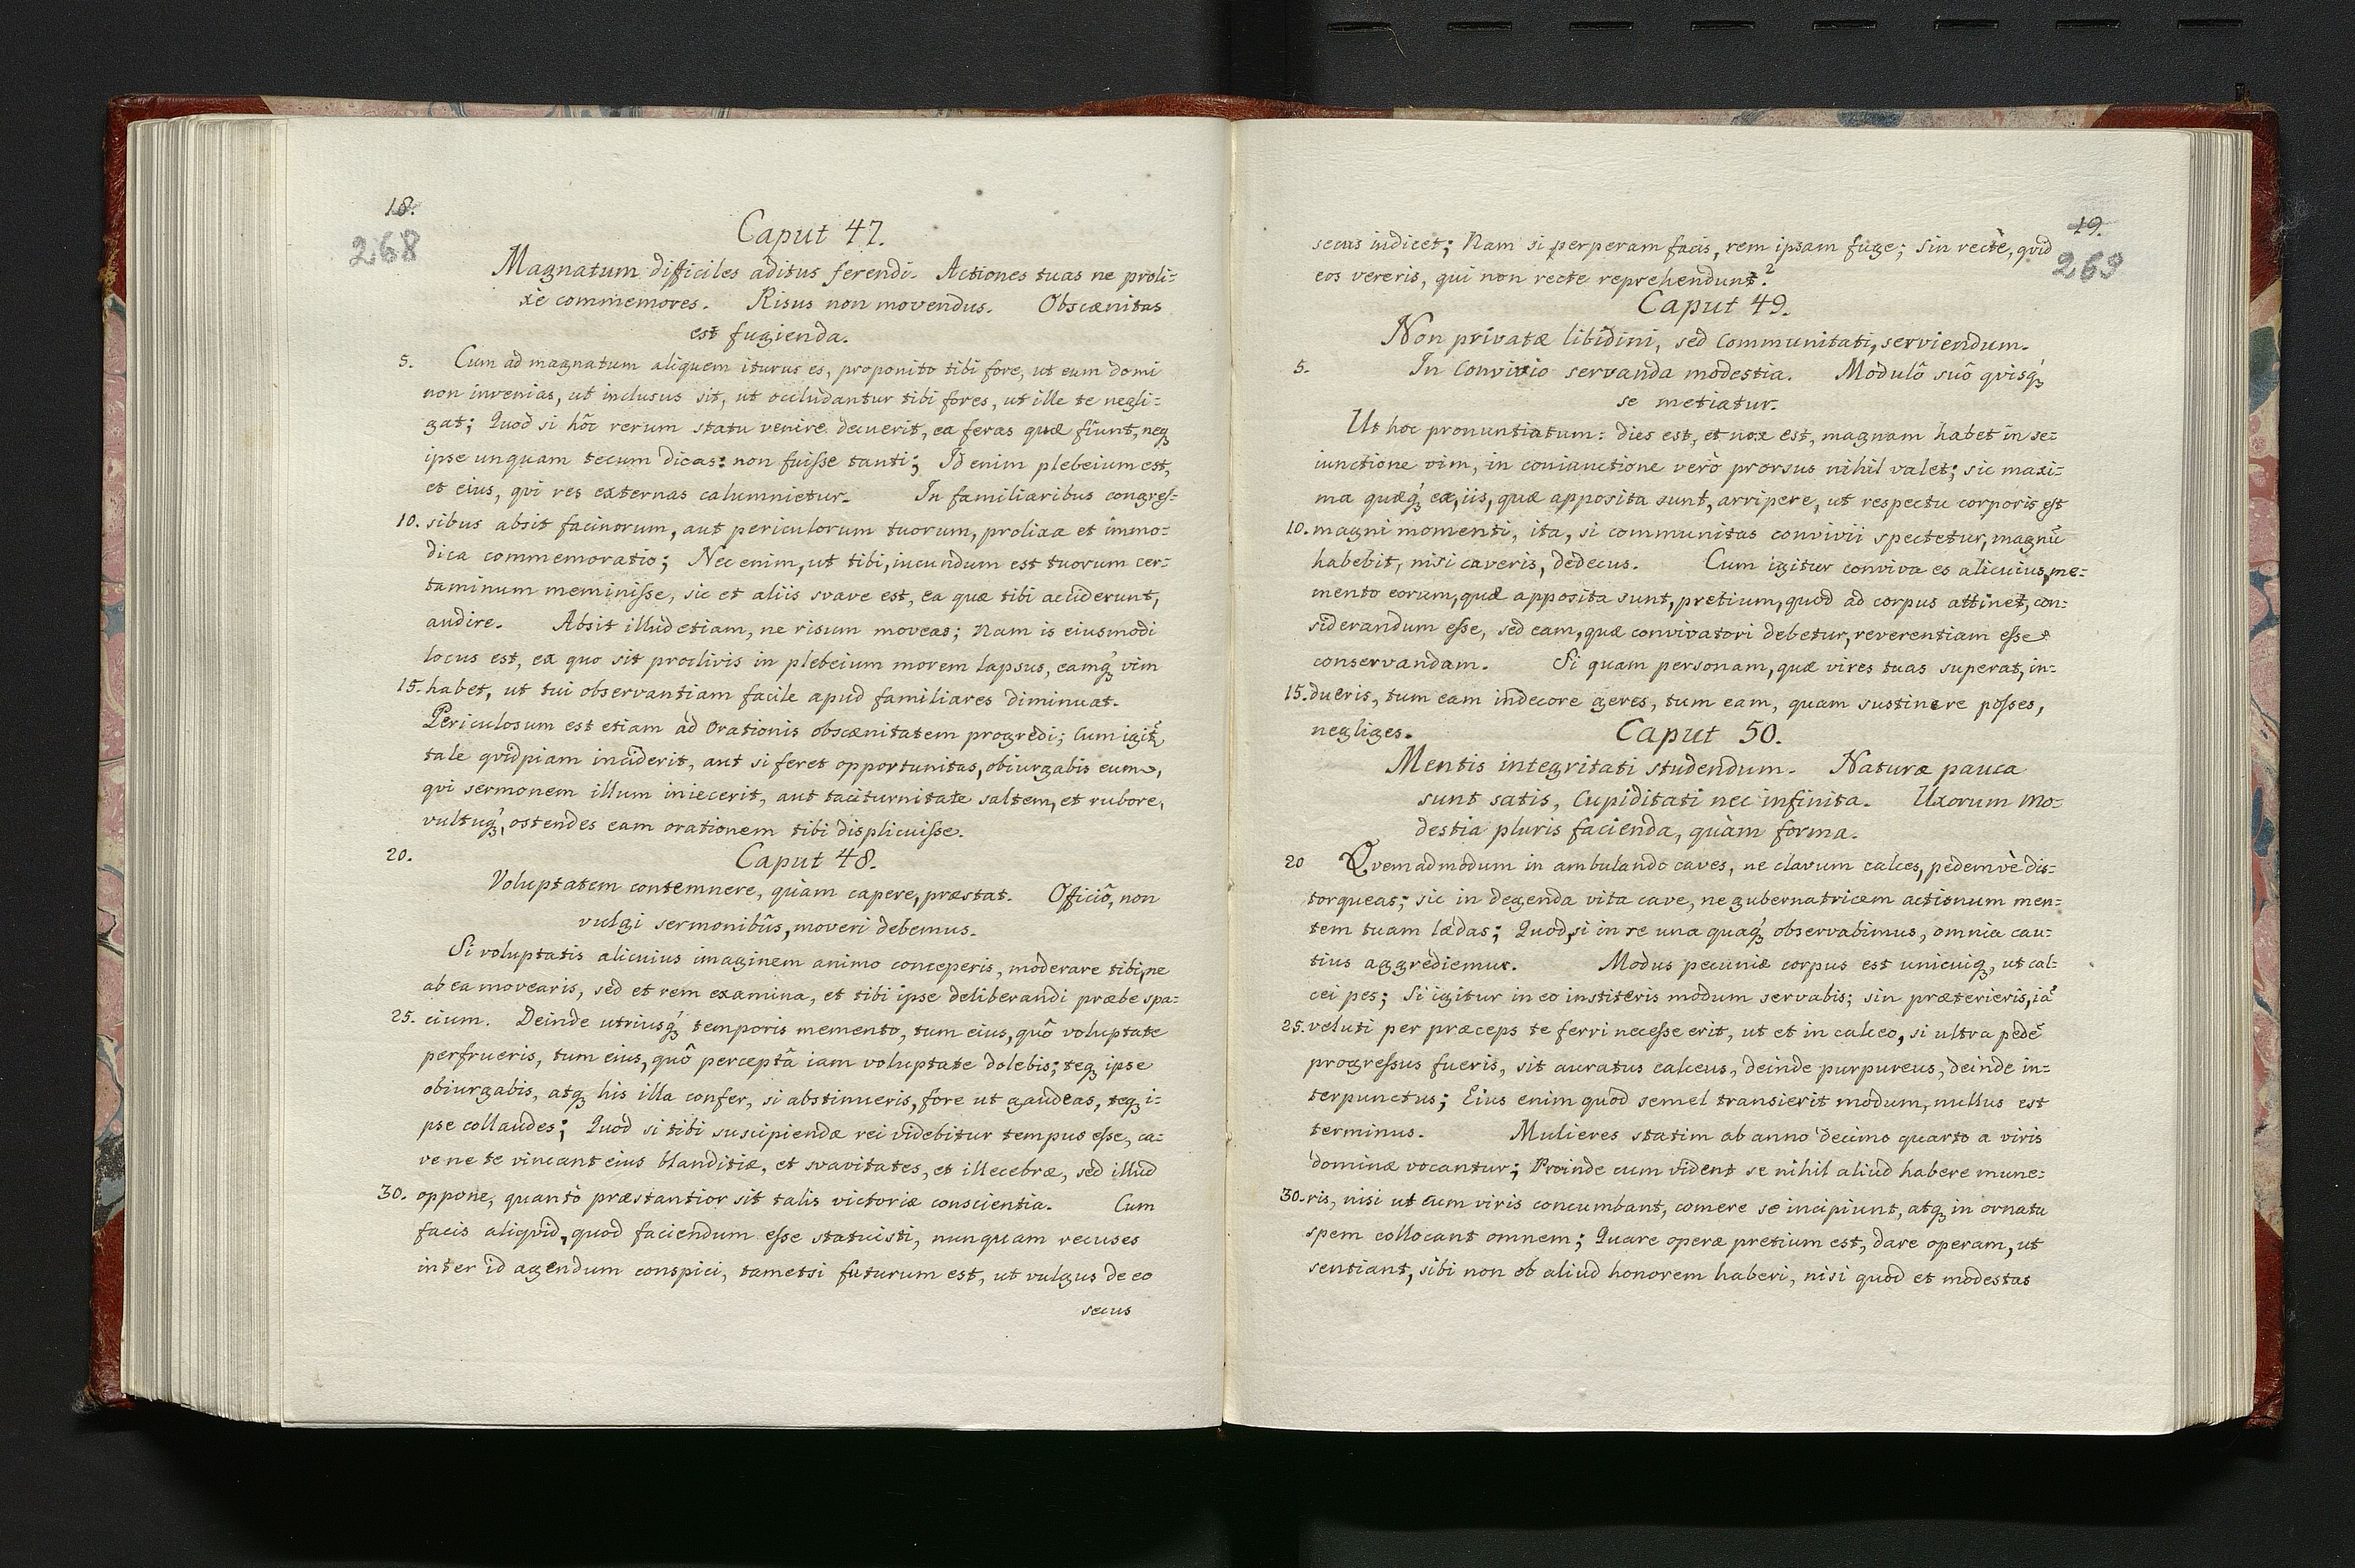 18.
268
Caput 47.
Magnatum difficiles aditus ferendi. Actiones tuas ne proli=
xè commemores. Risus non movendus. Obscænitas
est fugienda.
5. Cum ad magnatum aliquem iturus es, proponito tibi fore, ut eum domi
non invenias, ut inclusus sit, ut occludantur tibi fores, ut ille te negli=
gat; Quod si hôc rerum statu venire decuerit, ea feras quæ fiunt, neq;
ipse unquam tecum dicas: non fuisse tanti; Id enim plebeium est,
et eius, qvi res externas calumnietur. In familiaribus congres=
10. sibus absit facinorum, aut periculorum tuorum, prolixa et immo=
dica commemoratio; Nec enim, ut tibi, iucundum est tuorum cer=
taminum meminisse, sic et aliis svave est, ea quæ tibi acciderunt,
audire. Absit illud etiam, ne risum moveas; Nam is eiusmodi
locus est, ex quo sit proclivis in plebeium morem lapsus, eamq́; vim
15. habet, ut tui observantiam facile apud familiares diminuat.
Periculosum est etiam ad Orationis obscænitatem progredi; Cum igit̃
tale qvidpiam inciderit, aut si feret opportunitas, obiurgabis eum,
qvi sermonem illum iniecerit, aut taciturnitate saltem, et rubore,
vultuq́;, ostendes eam orationem tibi displicuisse.
20. Caput 48.
Voluptatem contemnere, quàm capere, præstat. Officiô, non
vulgi sermonibûs, moveri debemus.
Si voluptatis alicuius imaginem animo conceperis, moderare tibi, ne
ab ea movearis, sed et rem examina, et tibi ipse deliberandi præbe spa=
25. cium. Deinde utriusq́; temporis memento, tum eius, quô voluptate
perfrueris, tum eius, quô perceptâ iam voluptate dolebis; teq; ipse
obiurgabis, atq; his illa confer, si abstinueris, fore ut gaudeas, teq; i=
pse collaudes; Quod si tibi suscipiendæ rei videbitur tempus esse, ca=
ve ne te vincant eius blanditiæ, et svavitates, et illecebræ, sed illud
30. oppone, quantò præstantior sit talis victoriæ conscientia. Cum
facis aliqvid, quod faciendum esse statuisti, nunquam recuses
inter id agendum conspici, tametsi futurum est, ut vulgus de eo
secus
19.
269
secus iudicet; Nam si perperam facis, rem ipsam fuge; Sin rectè, qvid
eos vereris, qui non recte reprehendunt?
Caput 49.
Non privatæ libidini, sed Communitati, serviendum.
5. In Convivio servanda modestia. Modulô suô qvisq́;
se metiatur.
Ut hoc pronuntiatum: dies est, et nox est, magnam habet in se=
iunctione vim, in coniunctione verò prorsus nihil valet; sic maxi=
ma quæq́; ex, iis, quæ apposita sunt, arripere, ut respectu corporis est
10. magni momenti, ita, si communitas convivii spectetur, magnũ
habebit, nisi caveris, dedecus. Cum igitur conviva es alicuius, me=
mento eorum, quæ apposita sunt, pretium, quod ad corpus attinet, con=
siderandum esse, sed eam, quæ convivatori debetur, reverentiam esse
conservandam. Si quam personam, quæ vires tuas superat, in=
15. dueris, tum eam indecore geres, tum eam, quam sustinere posses,
negliges. Caput 50.
Mentis integritati studendum. Naturæ pauca
sunt satis, Cupiditati nec infinita. Uxorum Mo=
destia pluris facienda, quàm forma.
20 Qvemadmodum in ambulando caves, ne clavum calces, pedemvè dis=
torqueas; sic in degenda vita cave, ne gubernatricem actionum men=
tem tuam lædas; Quod, si in re una quaq́; observabimus, omnia cau=
tius aggrediemur. Modus pecuniæ corpus est unicuiq;, ut cal=
cei pes; Si igitur in eo institeris modum servabis; sin præterieris, iã
25. veluti per præceps te ferri necesse erit, ut et in calceo, si ultra pedẽ
progressus fueris, sit auratus calceus, deinde purpureus, deinde in=
terpunctus; Eius enim quod semel transierit modum, nullus est
terminus. Mulieres statim ab anno decimo quarto a viris
dominæ vocantur; Proinde cum vident se nihil aliud habere mune=
30. ris, nisi ut cum viris concumbant, comere se incipiunt, atq; in ornatu
spem collocant omnem; Quare operæ pretium est, dare operam, ut
sentiant, sibi non ob aliud honorem haberi, nisi quod et modestas